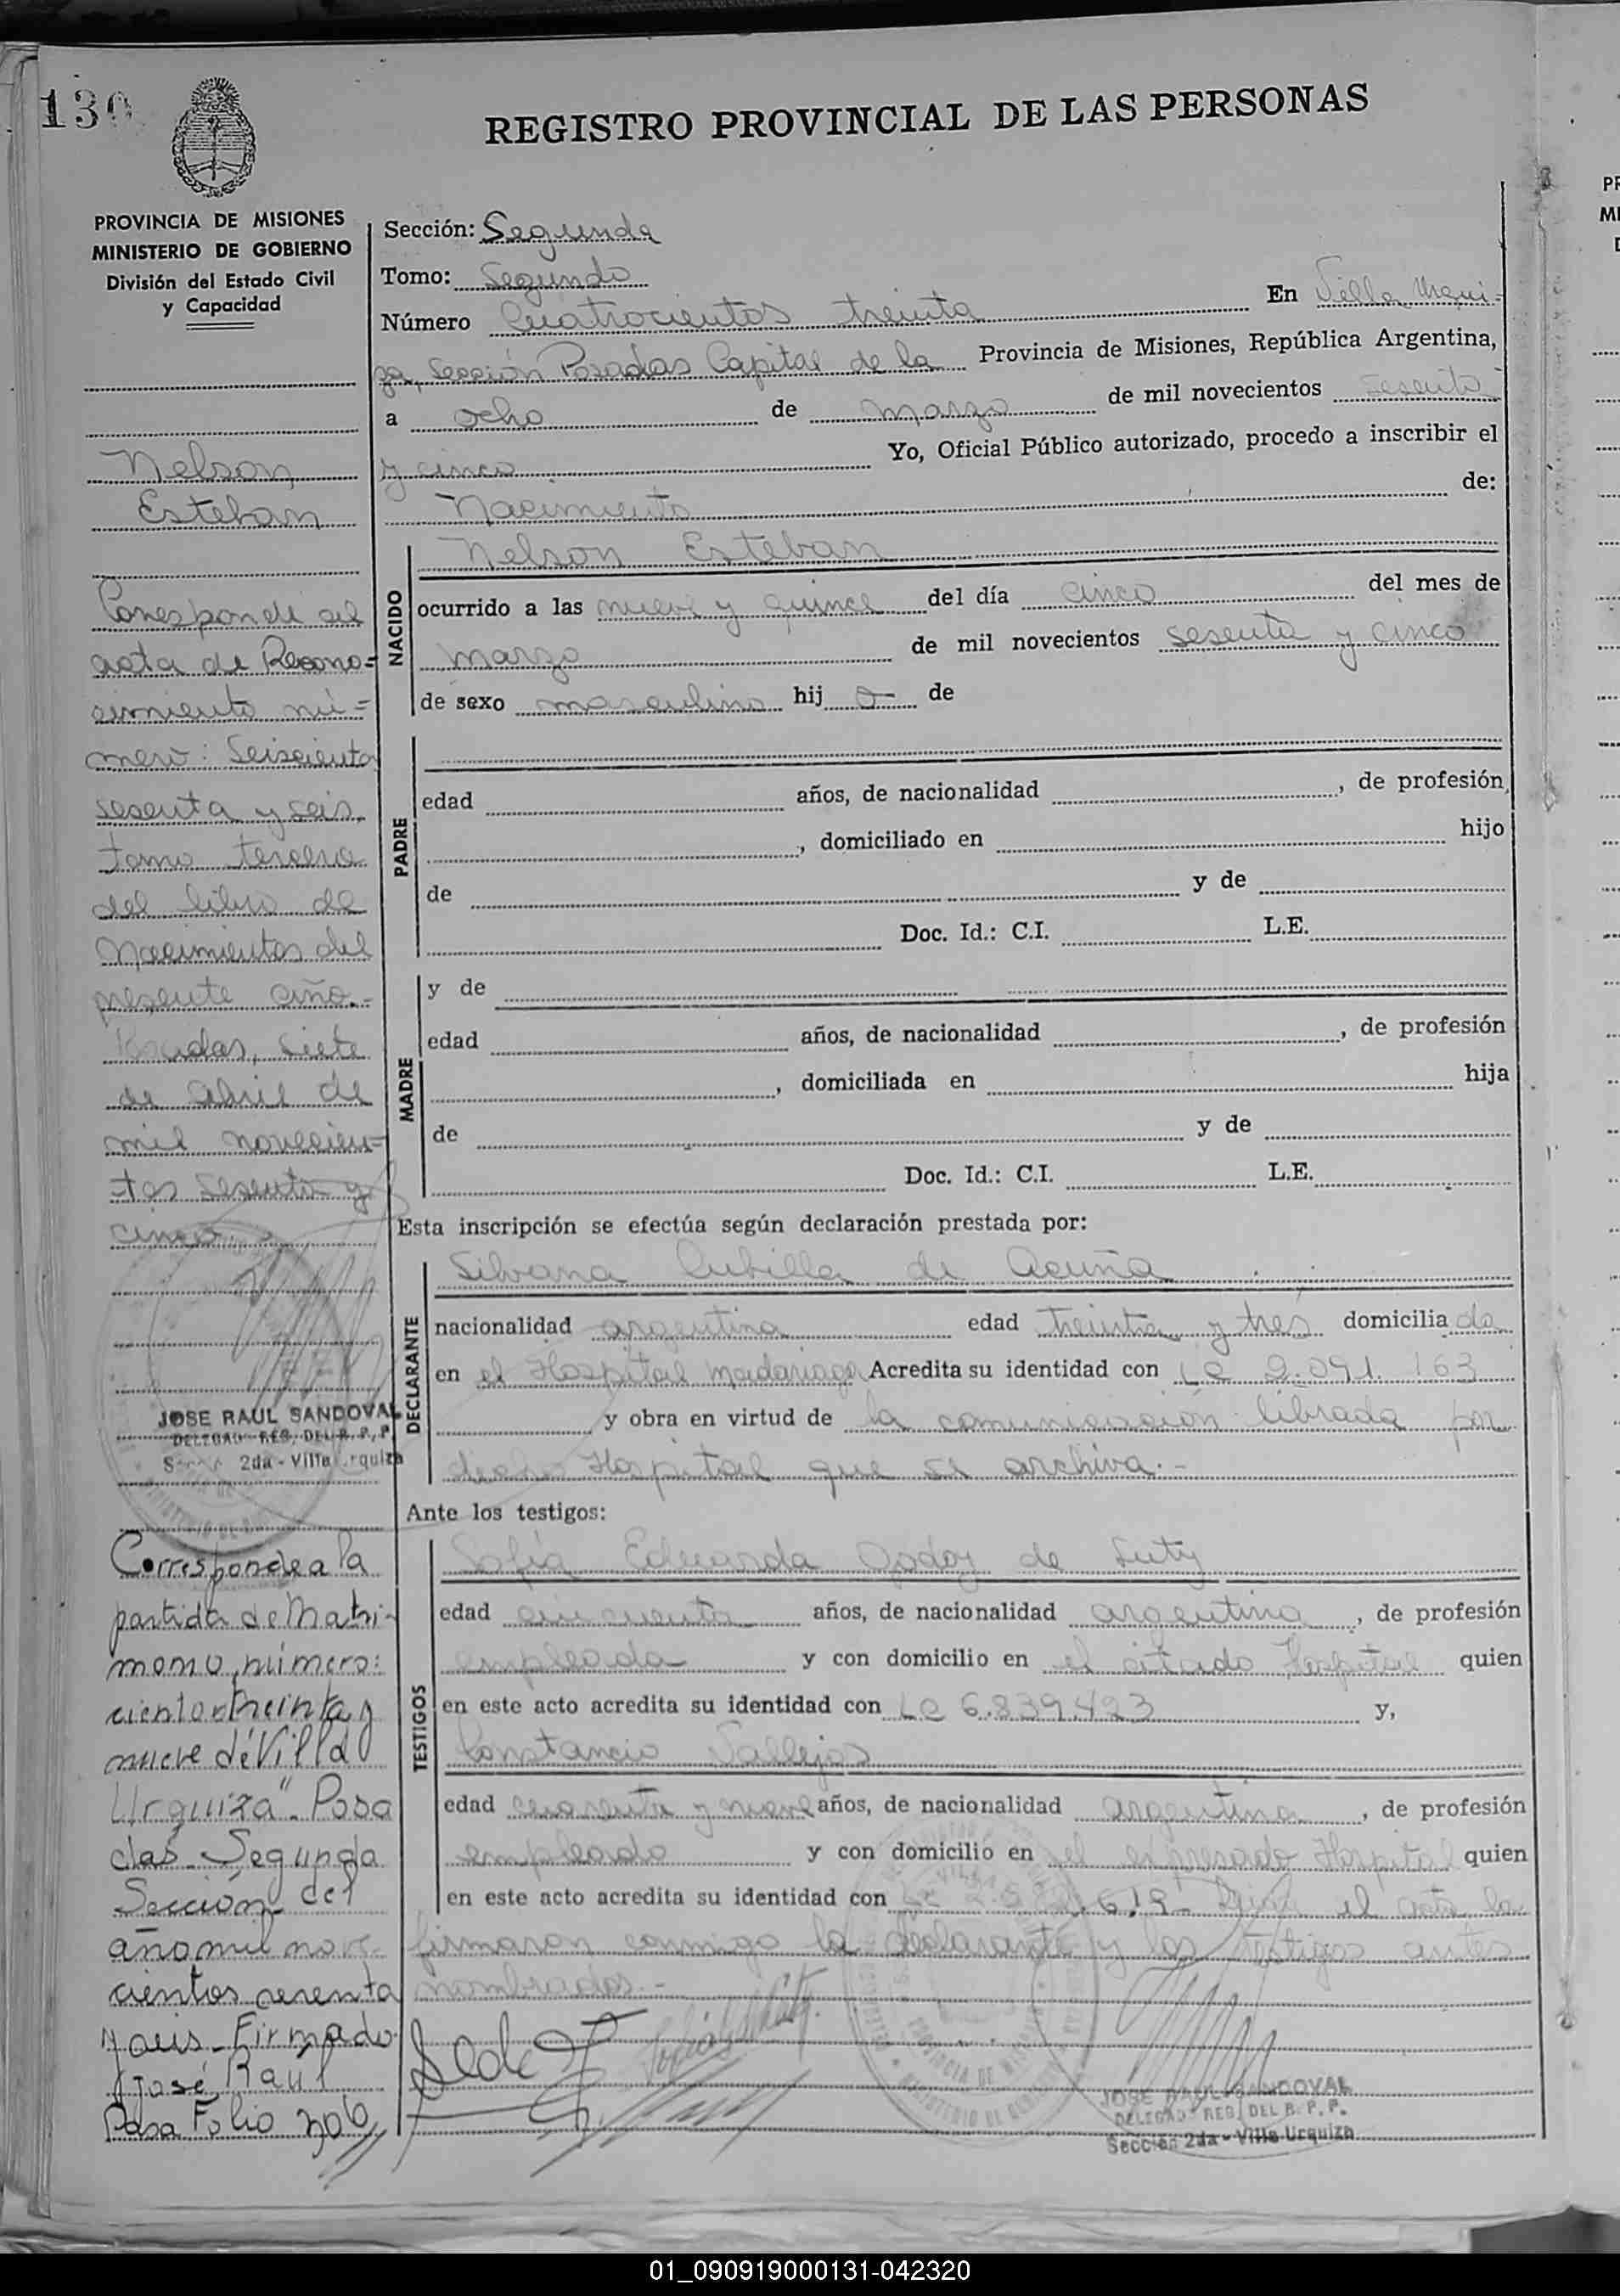 130
REGISTRO PROVINCIAL DE LAS PERSONAS
PROVINCIA DE MISIONES
MINISTERIO DE GOBIERNO
División del Estado Civil
y Capacidad
Nelson
Esteban
Corresponde al
acta de Recono=
cimiento nú=
mero: Seiscientos
sesenta y seis,
tomo tercero
del libro de
Nacimientos del
presente año.-
Posadas, siete
de abril de
mil novecien=
tos sesenta y
cinco.
JOSE RAUL SANDOVAL
DELEGAD REG. DEL R. P. P.
2da - Villa Urquiza
Corresponde a la
partida de Matri-
monio, número:
ciento treinta y
nueve de "Villa
Urquiza". Posa
das. Segunda
Sección del
año mil nove
cientos sesenta
y seis. Firmado
José Raúl
Pasa Folio 206
Sección: Segunda
Tomo: Segundo
Número Cuatrocientos treinta En Villa Urqui-
za, Sección Posadas Capital de la Provincia de Misiones, República Argentina,
a ocho de marzo de mil novecientos sesenta
y cinco Yo, Oficial Público autorizado, procedo a inscribir el
Nacimiento de:
NACIDO
Nelson Esteban
ocurrido a las nueve y quince del día cinco del mes de
marzo de mil novecientos sesenta y cinco
de sexo masculino hij o de
PADRE
edad años, de nacionalidad , de profesión
, domiciliado en hijo
de y de
Doc. Id.: C.I. L.E.
MADRE
y de
edad años, de nacionalidad , de profesión
, domiciliada en hija
de y de
Doc. Id.: C.I. L.E.
Esta inscripción se efectúa según declaración prestada por:
DECLARANTE
Silvana Cubilla de Acuña
nacionalidad argentina edad treinta y tres domicilia da
en el Hospital Madariaga Acredita su identidad con LC 2.091.163
y obra en virtud de la comunicación librada por
dicho Hospital que se archiva.-
Ante los testigos:
TESTIGOS
Sofía Eduarda Godoy de Suty
edad cincuenta años, de nacionalidad argentina, de profesión
empleada y con domicilio en el citado Hospital quien
en este acto acredita su identidad con LC 6.839.423 y,
Constancio Vallejos
edad cuarenta y nueve años, de nacionalidad argentina, de profesión
empleado y con domicilio en el expresado Hospital quien
en este acto acredita su identidad con 619- el acta la
firmaron conmigo la declarante y los testigos antes
nombrados.-
JOSE RAUL SANDOVAL
DELEGAD REG. DEL R. P. P.
Sección 2da - Villa Urquiza
01_090919000131-042320